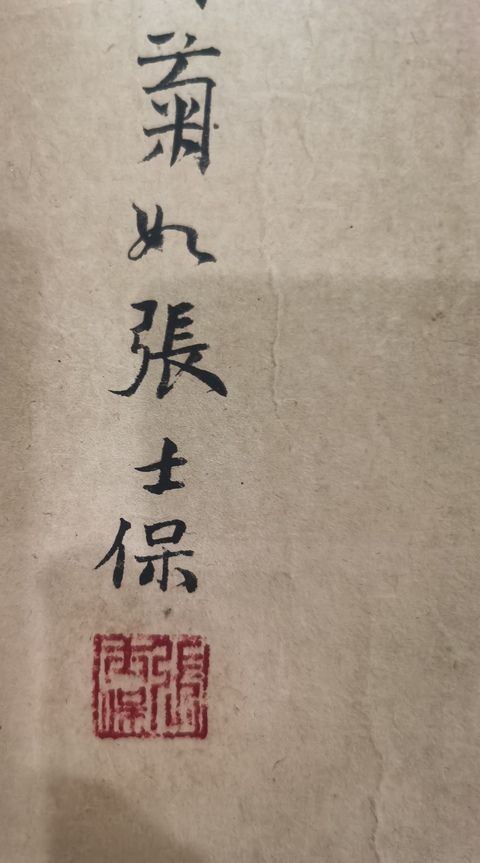 菊如張士保